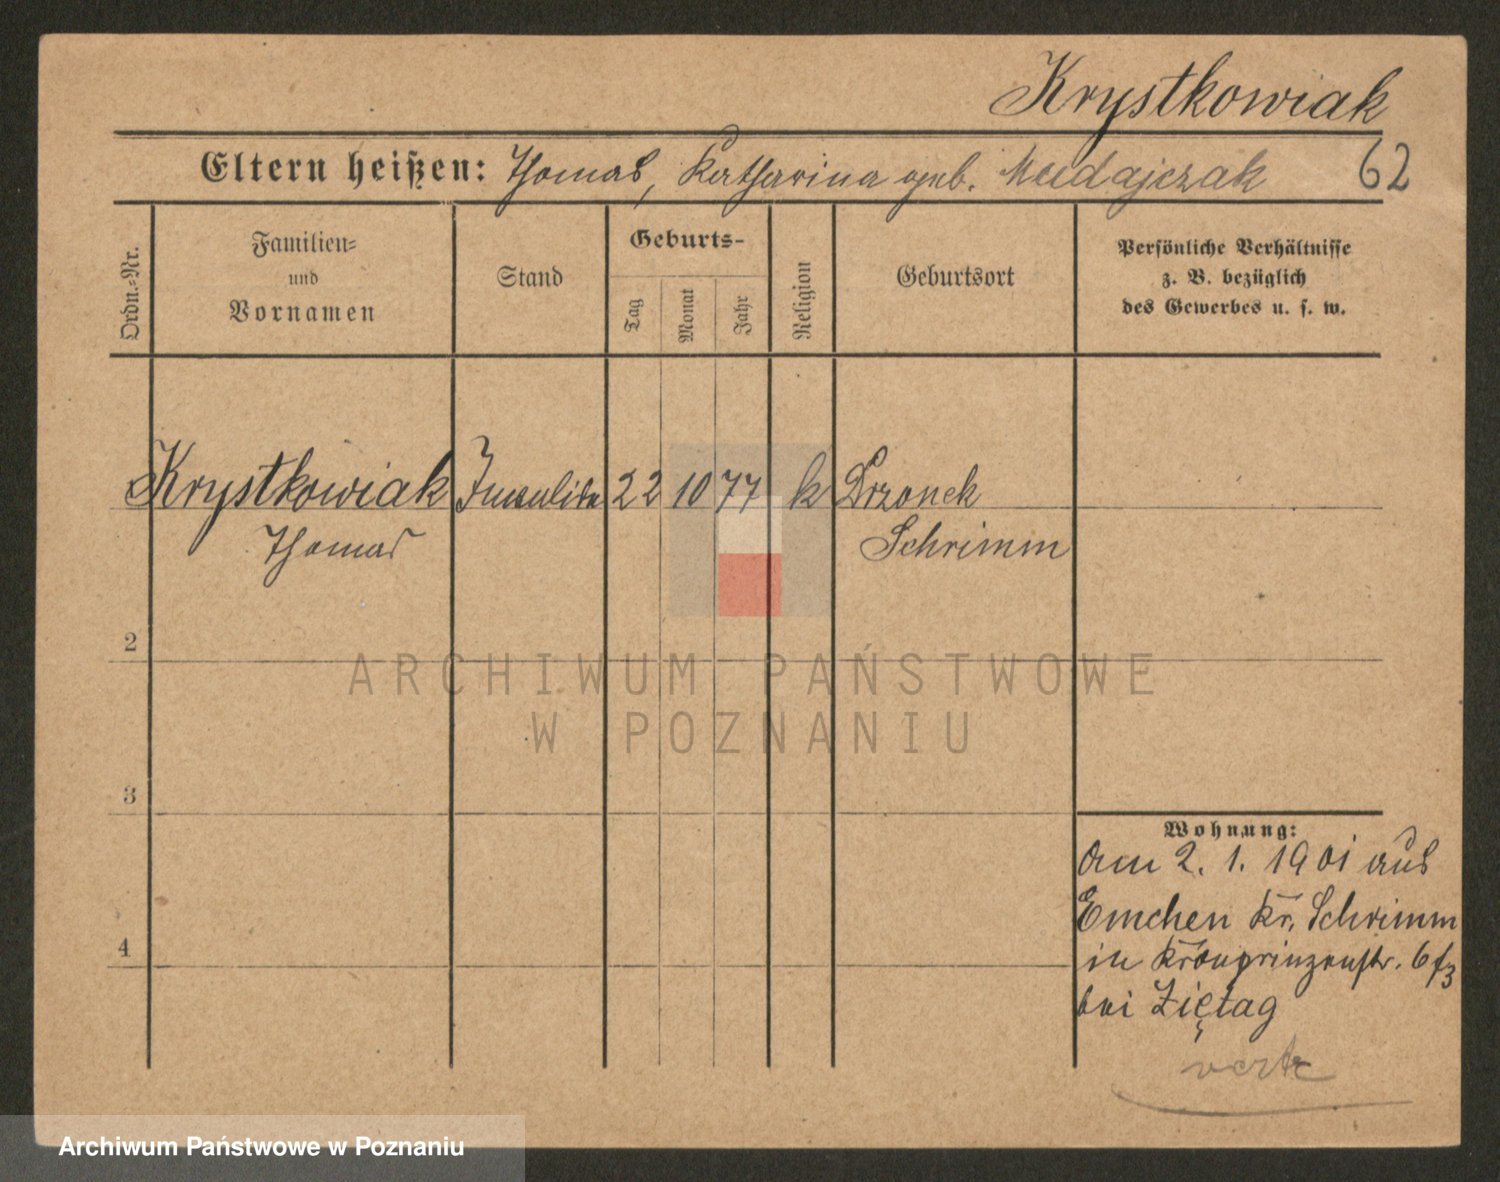 Krystkowiak
Eltern heißen: Thomas, Katharina geb. Mudajczak 62
Ordn.-Nr.
Familien-
und
Vornamen
Stand
Geburts-
Tag
Monat
Jahr
Religion
Geburtsort
Persönliche Verhältnisse
z. B. bezüglich
des Gewerbes u. s. w.
Krystkowiak 22 10 77 k Drzonek
Thomas Schrimm
2
3
4
Wohnung:
am 2. 1. 1901 aus
Emchen Kr. Schrimm
in Kronprinzenstr. 6
bei Ziętag
verte
ARCHIWUM PAŃSTWOWE
W POZNANIU
Archiwum Państwowe w Poznaniu